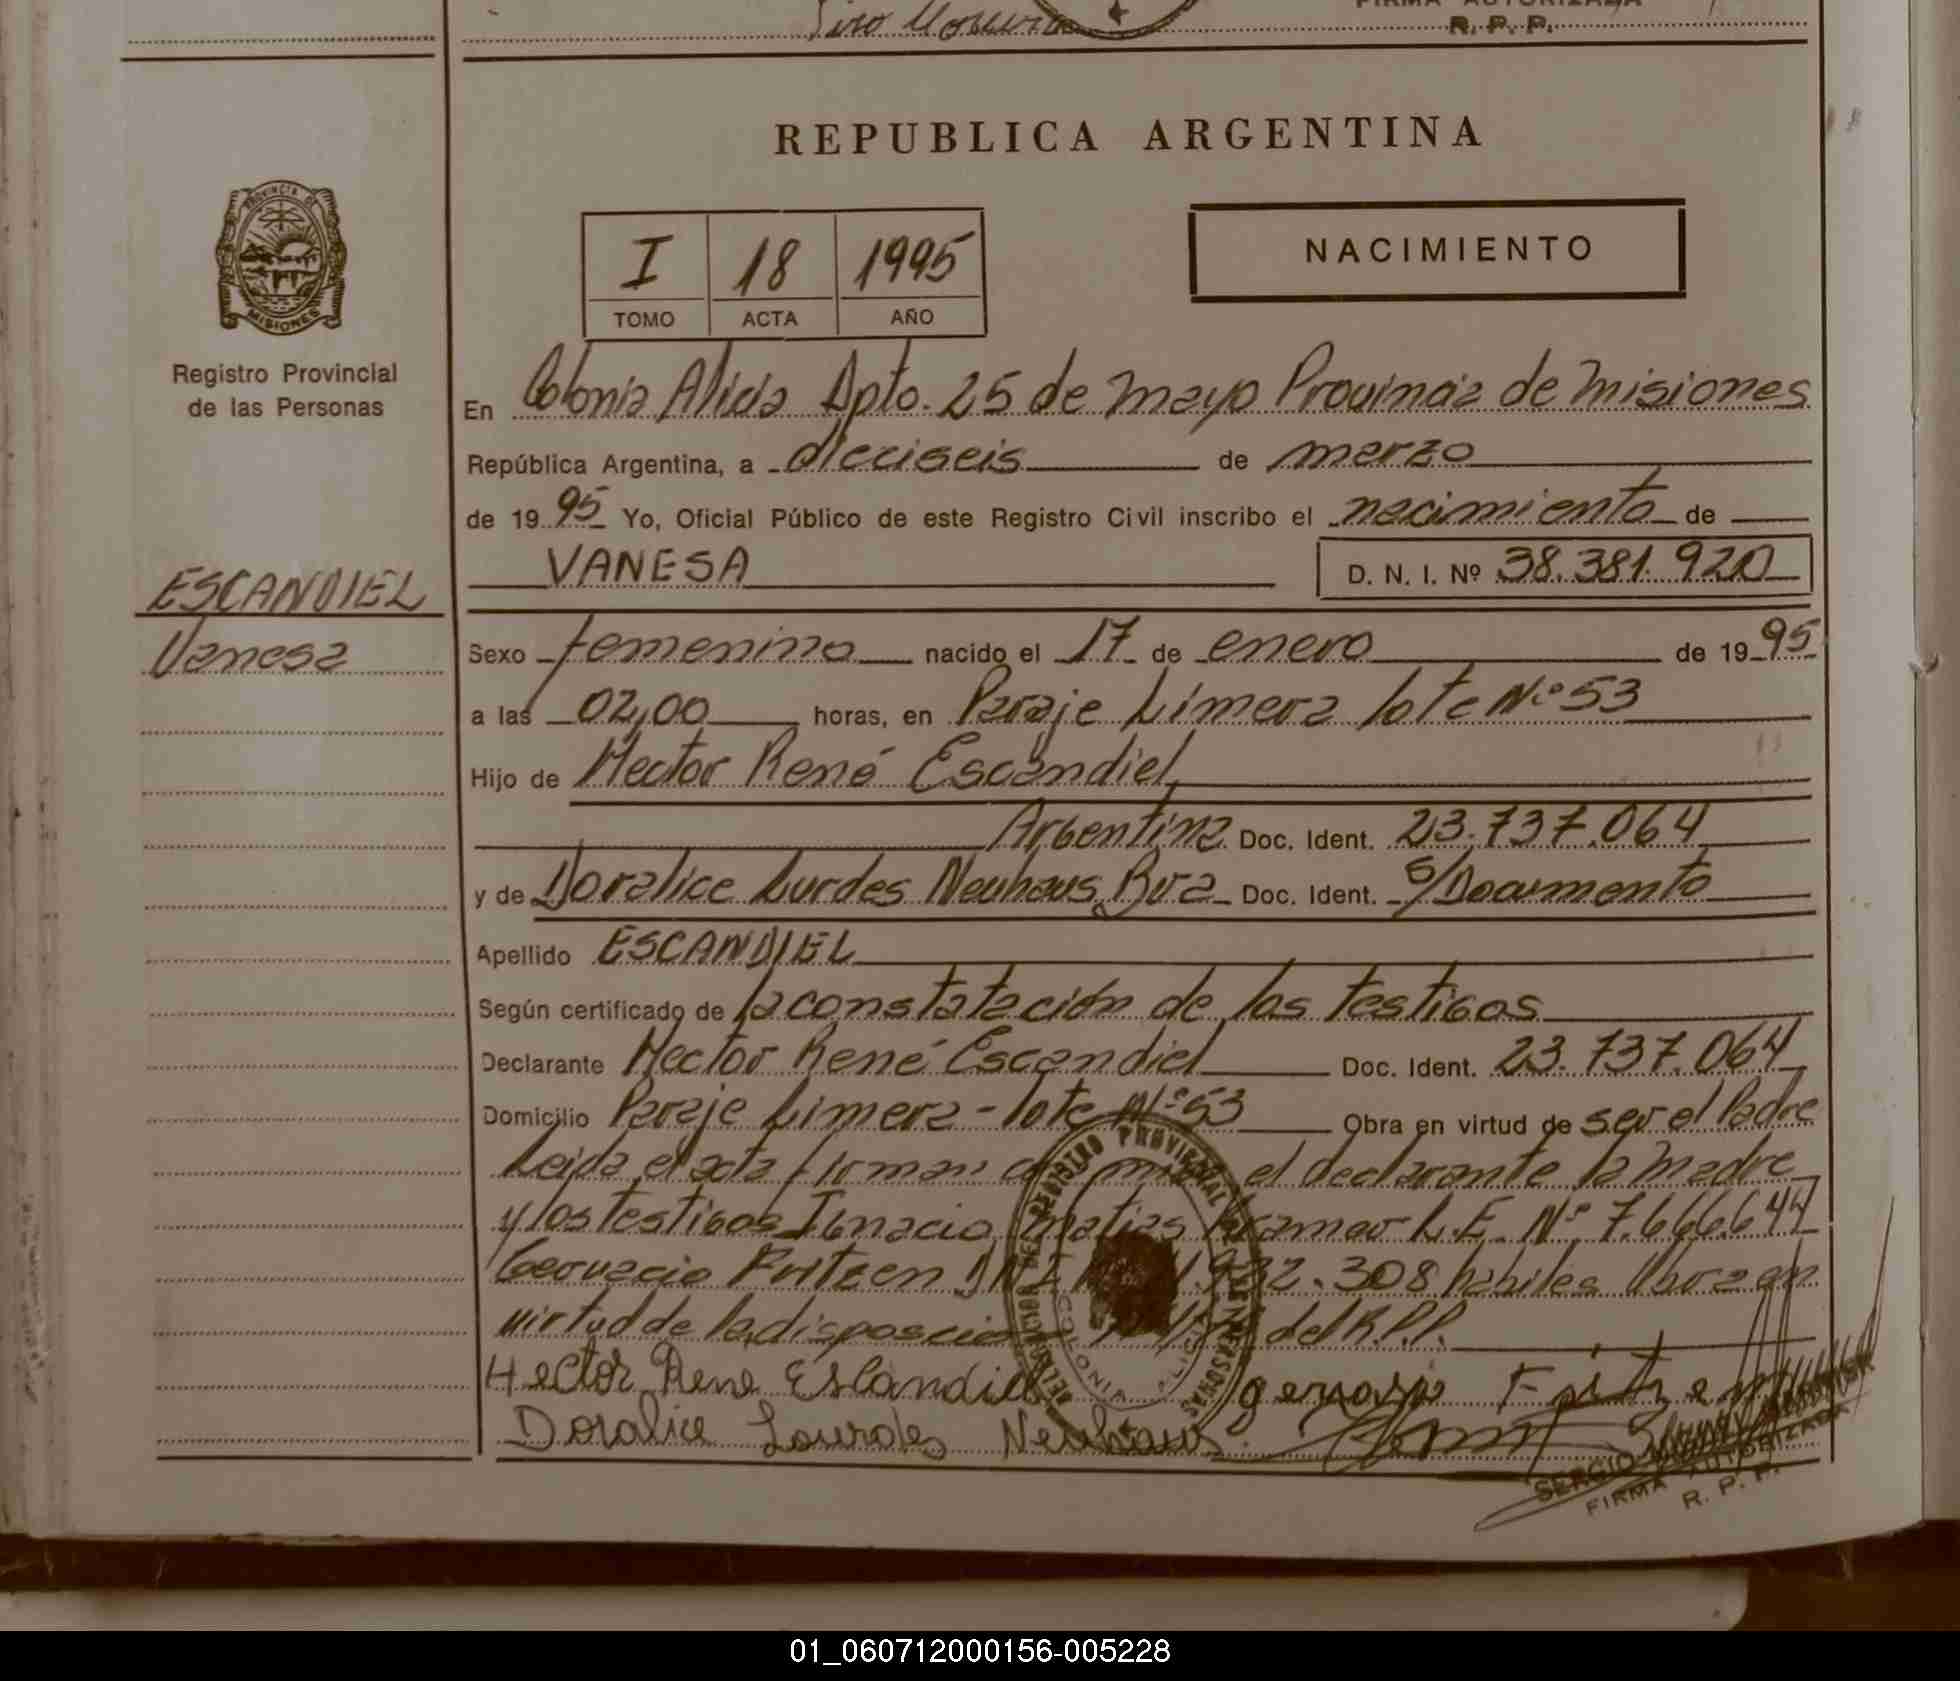 FIRMA AUTORIZADA
R. P. P.
REPUBLICA ARGENTINA
PROVINCIA DE
MISIONES
Registro Provincial
de las Personas
I 18 1995
TOMO ACTA AÑO
NACIMIENTO
En Colonia Alicia Dpto. 25 de Mayo Provincia de Misiones
República Argentina, a dieciseis de marzo
de 19 95 Yo, Oficial Público de este Registro Civil inscribo el nacimiento de
VANESA D. N. I. Nº 38.381.920
ESCANDIEL
Vanesa
Sexo femenino nacido el 17 de enero de 19 95
a las 02,00 horas, en Paraje Limera lote Nº 53
Hijo de Hector René Escandiel,
Argentina Doc. Ident. 23.737.064
y de Doralice Lurdes Neuhaus, Bra Doc. Ident. s/Documento
Apellido ESCANDIEL
Según certificado de la constatación de los testigos
Declarante Hector René Escandiel Doc. Ident. 23.737.064
Domicilio Paraje Limera - lote Nº 53 Obra en virtud de ser el Padre
Leida el acta firman el declarante la Madre
y los testigos Ignacio Matias Kramer L.E. Nº 7.666.644
Gervacio Fritzen 308 habiles
virtud de la del R.P.P.
Hector Rene Escandiel gervasio Fritzen
Doralice Lourdes Neuhaus
SERGIO
FIRMA AUTORIZADA
R. P. P.
01_060712000156-005228